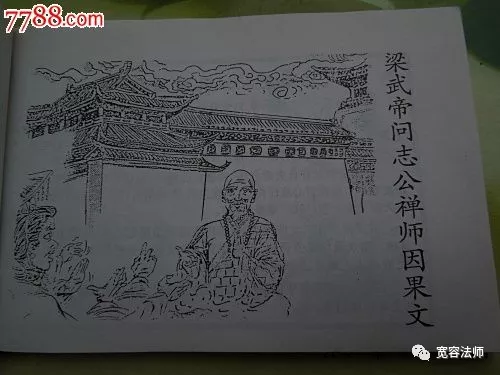 7788.com
梁武帝问志公禅师因果文
宽容法师